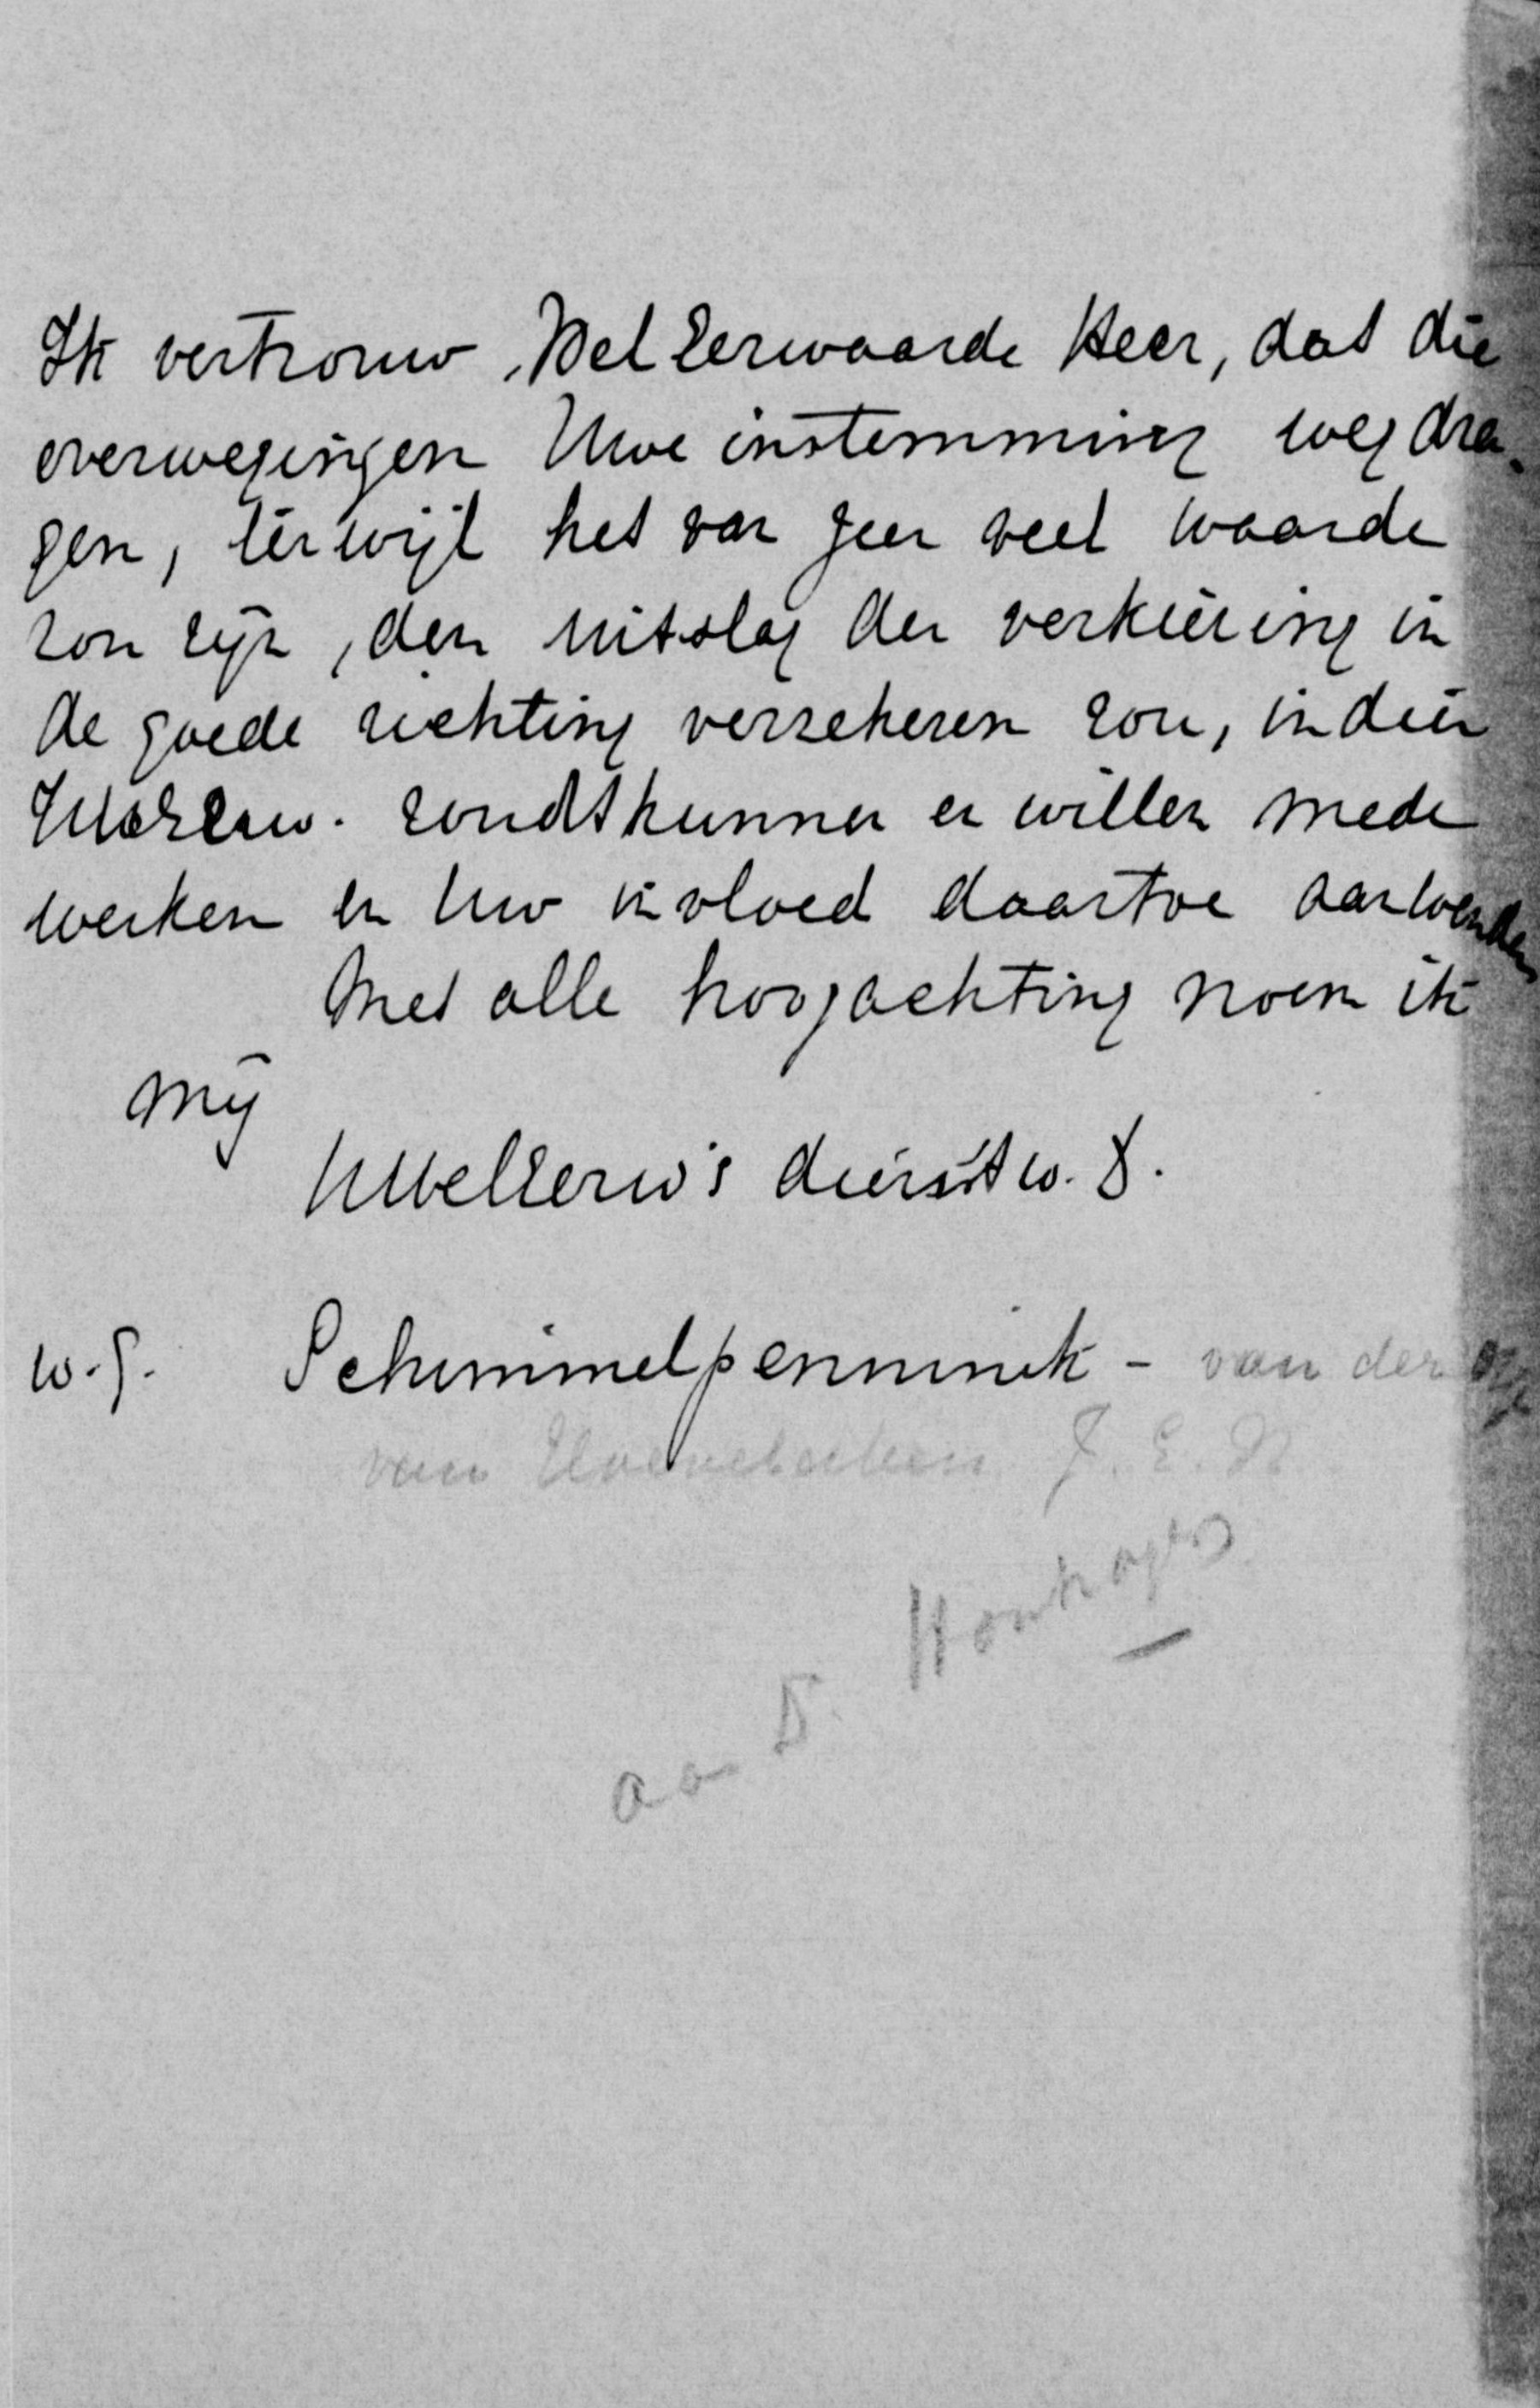 Ik vertrouw, Wel Eerwaarde Heer, dat die
overwegingen Uwe instemming wegdra-
gen, terwijl het van zeer veel waarde
zou zijn, den uitslag der verkiezing in
de goede richting verzekeren zou, indien
zoudt kunnen en willen mede
werken en Uw invloed daartoe aanwenden
Met alle hoogachting noem ik
mij
UWelEerw's dienstw. D.
w.g. Schimmelpenninck - van der
van J. E. N
aan D.